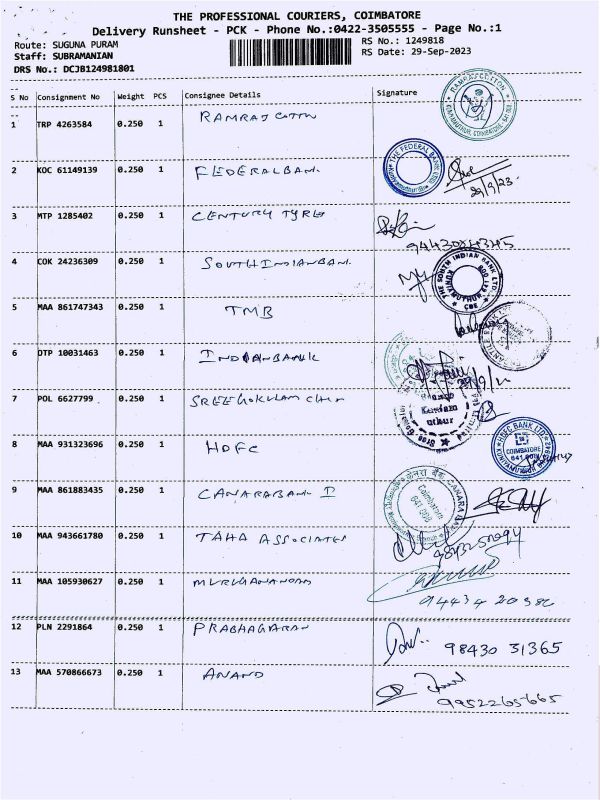 THE PROFESSIONAL COURIERS, COIMBATORE
Delivery Runsheet - PCK - Phone No.:0422-3505555 - Page No.:1
Route: SUGUNA PURAM
RS No.: 1249818
Staff: SUBRAMANIAN
RS Date: 29-Sep-2023
DRS No.: DCJB124981801
S No Consignment No Weight PCS Consignee Details Signature
1 TRP 4263584 0.250 1 RAMRAJ COTTON
RAMRAJ COTTON
2 KOC 61149139 0.250 1 FEDERALBANK
THE FEDERAL BANK LTD.
29/9/23
3 MTP 1285402 0.250 1 CENTURY TYRES
4 COK 24236309 0.250 1 SOUTHINDIANBANK
THE SOUTH INDIAN BANK LTD.
KUNIAMUTHUR
CBE
5 MAA 861747343 0.250 1 TMB
6 DTP 10031463 0.250 1 INDIANBANK
7 POL 6627799 0.250 1 SREEGOKULAM
8 MAA 931323696 0.250 1 HDFC
HDFC BANK LTD
COIMBATORE
9 MAA 861883435 0.250 1 CANARABANK I
केनरा बैंक CANARA BANK
Coimbatore
641 008
10 MAA 943661780 0.250 1 TAHA ASSOCIATES
11 MAA 105930627 0.250 1 MURUGANANDAM
94434 20386
12 PLN 2291864 0.250 1 PRABHAGARAN
98430 31365
13 MAA 570866673 0.250 1 ANAND
9952265665